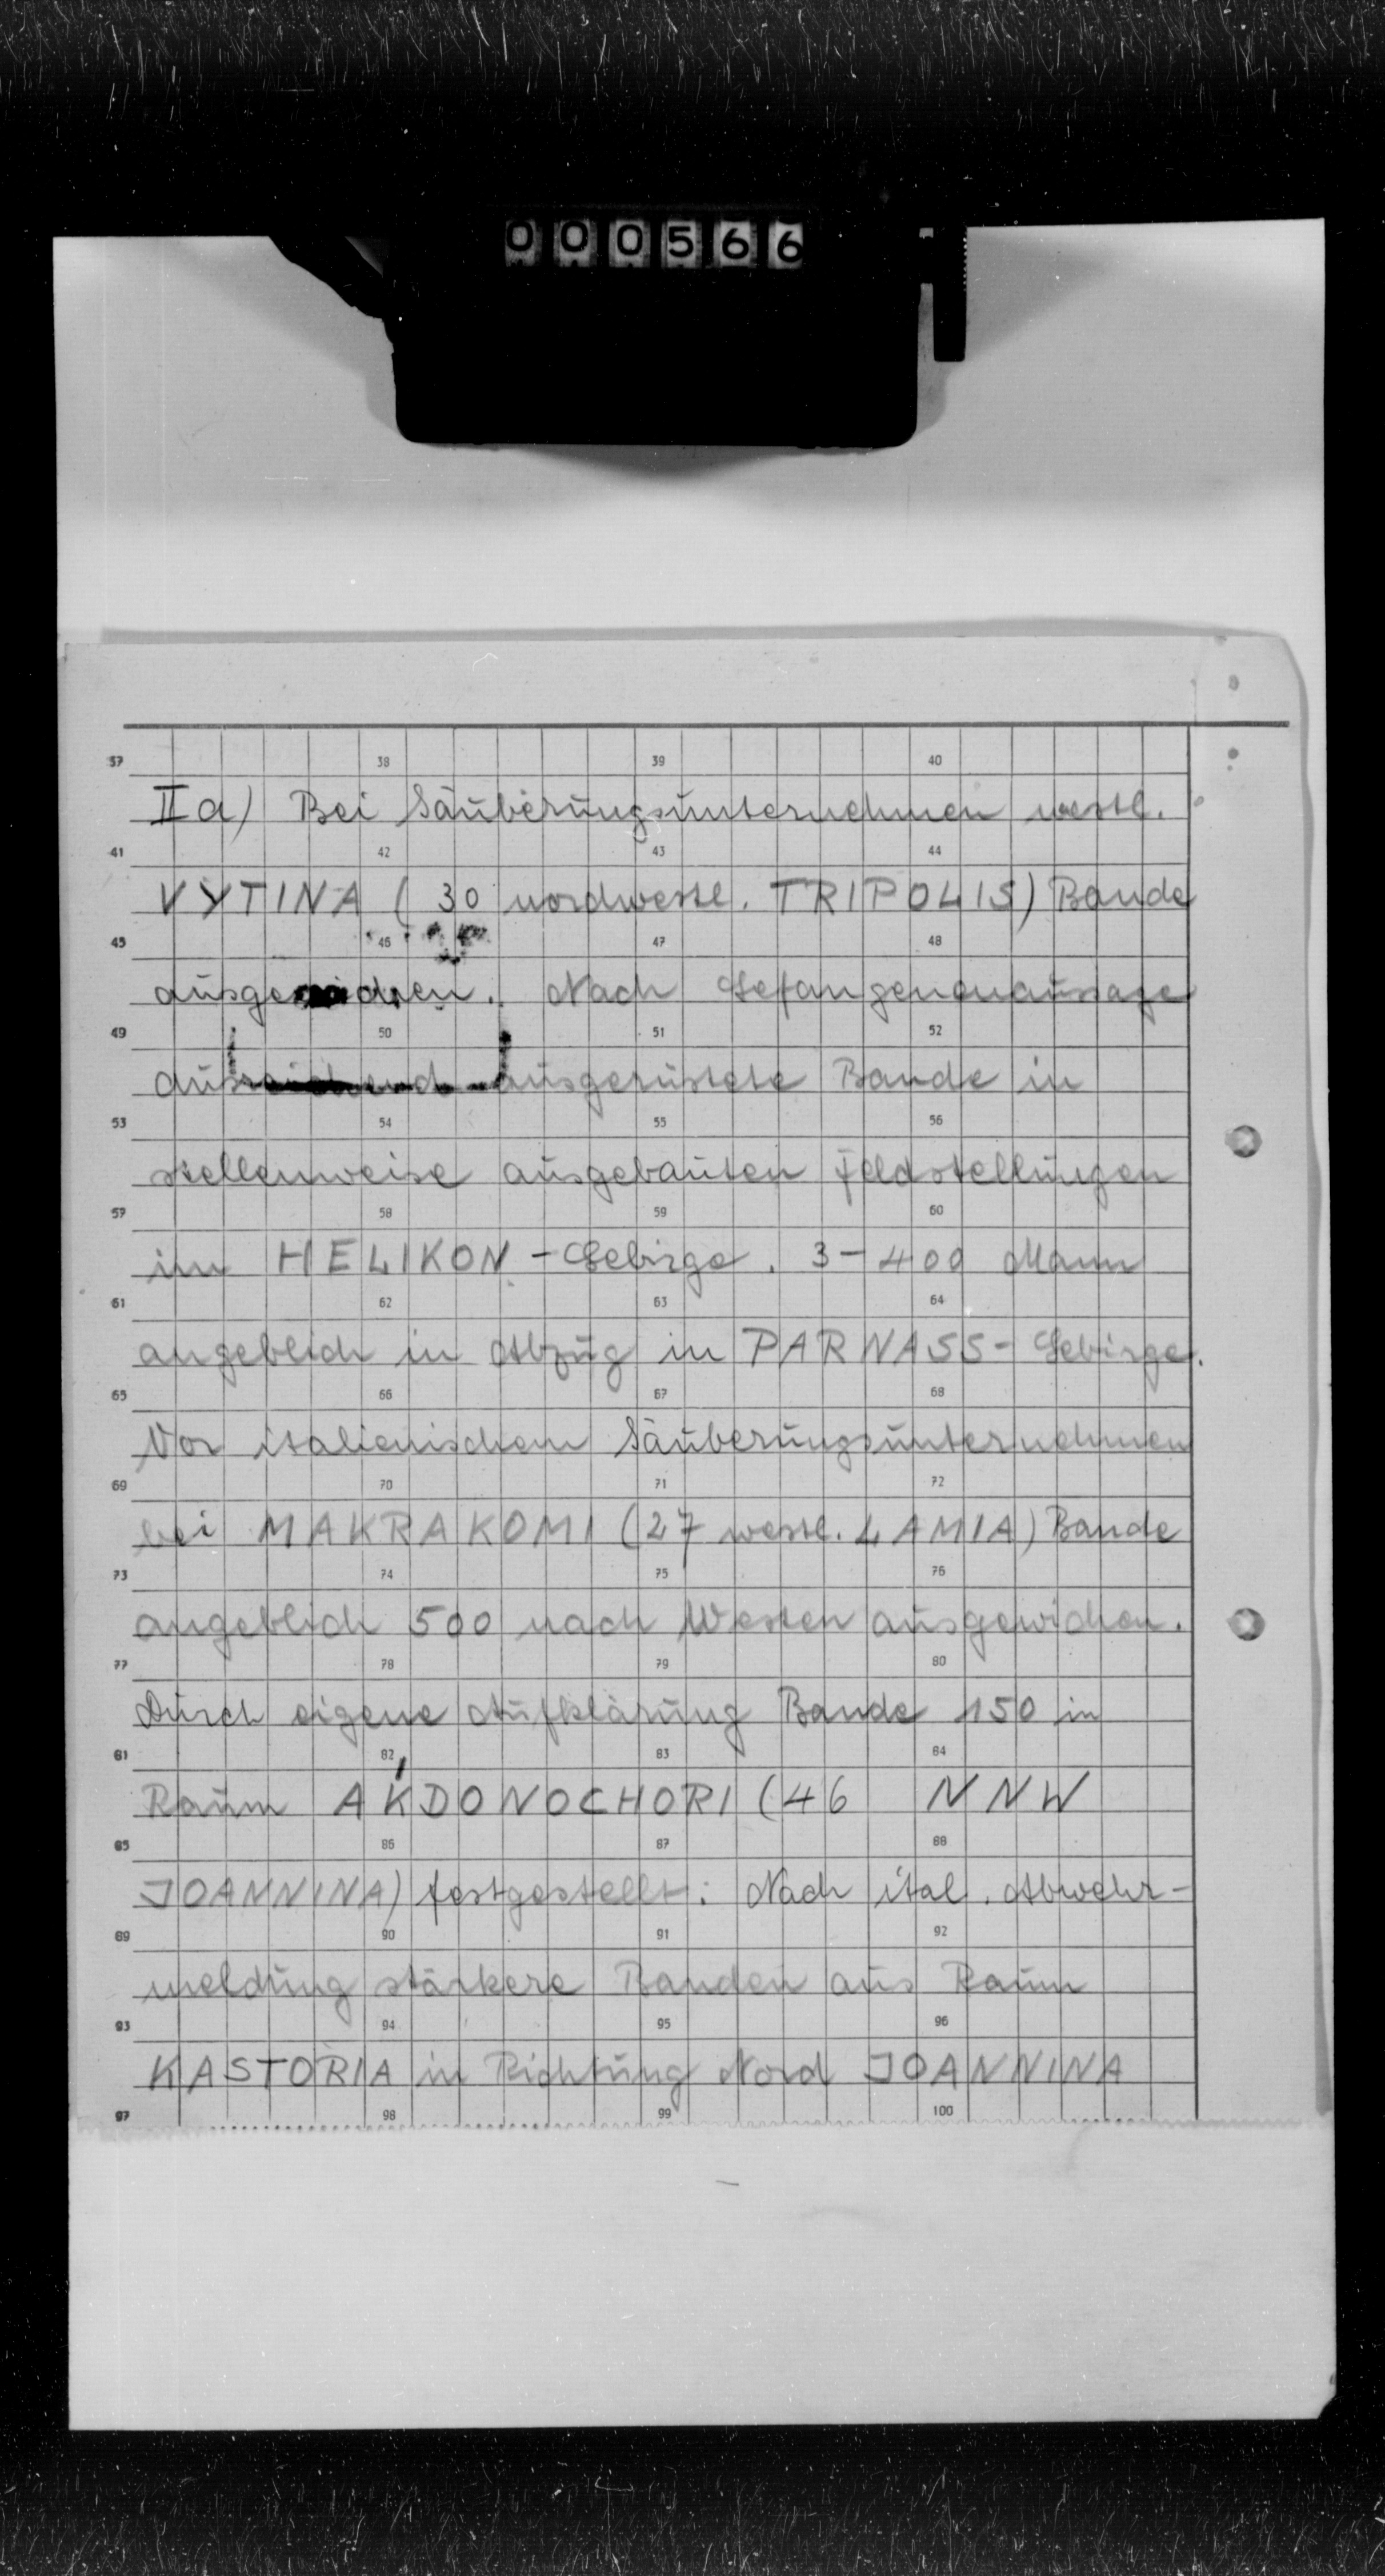 000566
37 38 39 40
IIa) Bei Säuberungsunternehmen westl.
41 42 43 44
VYTINA (30 nordwestl. TRIPOLIS) Bande
45 46 47 48
ausgewichen. Nach Gefangenenaussage
49 50 51 52
ausgerüstete Bande in
53 54 55 56
stellenweise ausgebauten Feldstellungen
57 58 59 60
im HELIKON-Gebirge. 3-400 Mann
61 62 63 64
angeblich in Abzug in PARNASS-Gebirge.
65 66 67 68
Vor italienischem Säuberungsunternehmen
69 70 71 72
bei MAKRAKOMI (27 westl. LAMIA) Bande
73 74 75 76
angeblich 500 nach Westen ausgewichen.
77 78 79 80
Durch eigene Aufklärung Bande 150 in
81 82 83 84
Raum AKDONOCHORI (46 NNW
85 86 87 88
JOANNINA) festgestellt. Nach ital. Abwehr-
89 90 91 92
meldung stärkere Banden aus Raum
93 94 95 96
KASTORIA in Richtung Nord JOANNINA
97 98 99 100